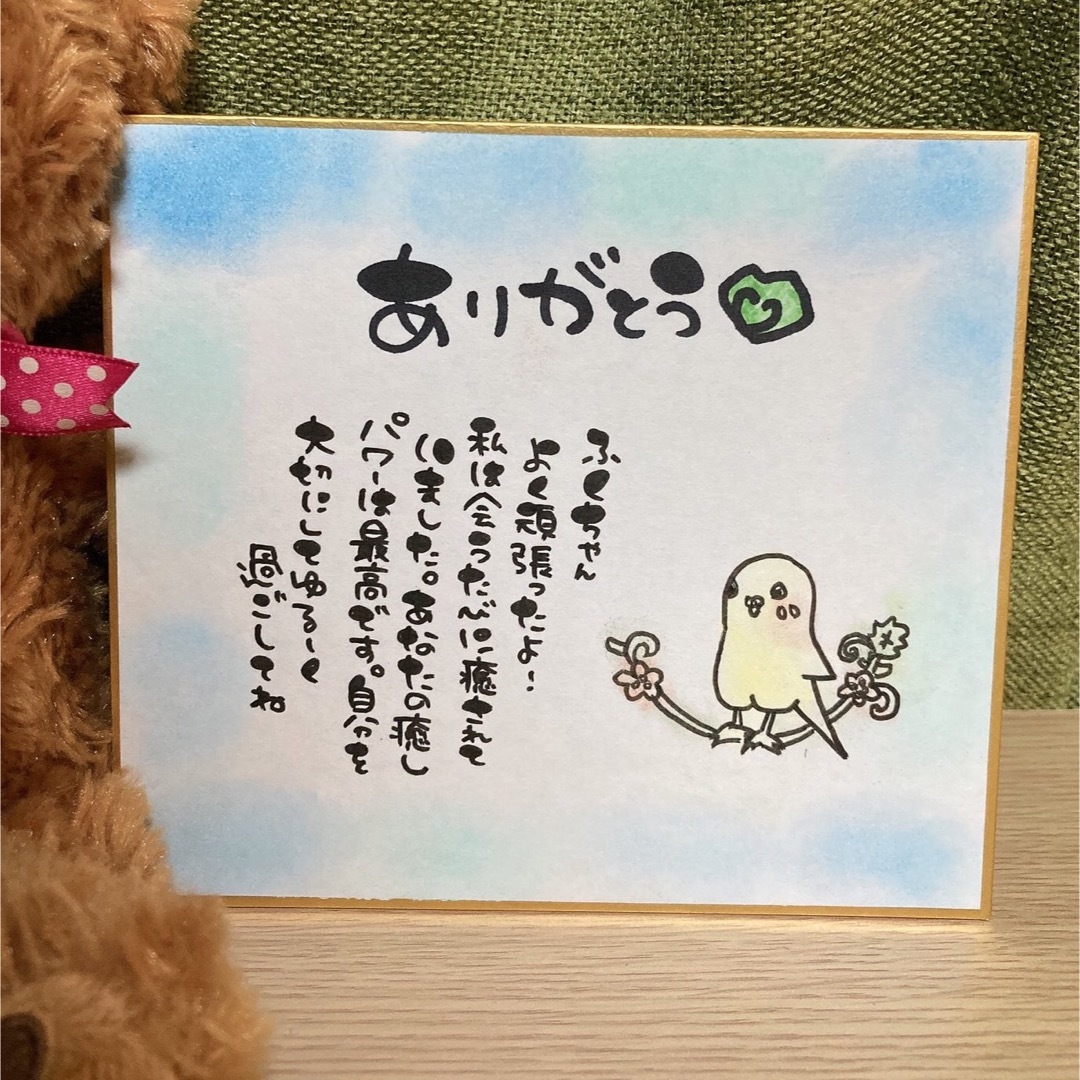 ありがとう
ふくちゃん
よく頑張ったよ!
私は会うたびに癒されて
いました。あなたの癒し
パワーは最高です。自分を
大切にしてゆる〜く
過ごしてね